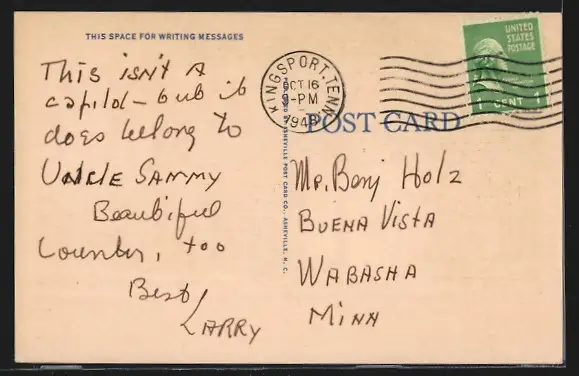 THIS SPACE FOR WRITING MESSAGES
This isn't A
capitol - but it
does belong to
UNCLE SAMMY
Beautiful
Country, too
Best
LARRY
KINGSPORT, TENN.
OCT 16
9-PM
1948
UNITED
STATES
POSTAGE
1 CENT 1
POST CARD
ASHEVILLE POST CARD CO., ASHEVILLE, N. C.
Mr. Benj Holz
BUENA VISTA
WABASHA
MINN